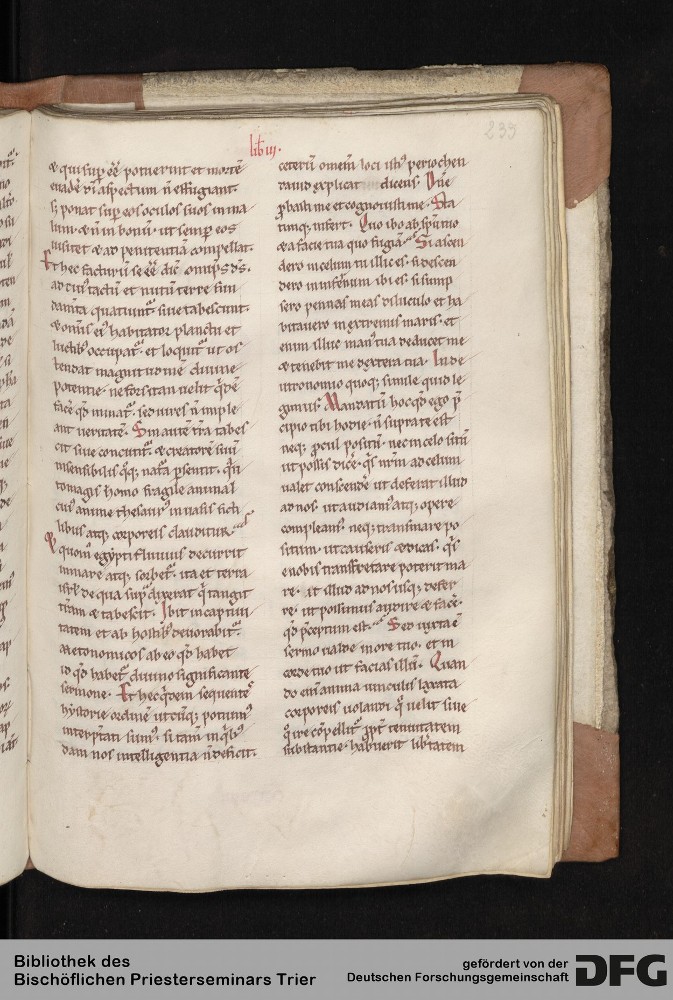 lib iii.
239
& qui sup eē potuerint et mortē
euadē n̄ aspectum n̄ effugiant.
s; ponat sup eos oculos suos in ma
lum. & n̄ in bonū. ut semp eos
uisitet & ad penitentiā compellat.
Et hec facturū se eē dic̄ omnip̄s d̄s.
ad cui' tactū et nutū terre fun
dam̄ta quatiunt̄. siue tabescunt.
& om̄is ei' habitator planctu et
luctib' occupat̄. et loquit̄ ut os
tendat magnitudinē diuine
potentie. ne forsitan uelit q̄dē
facē qd̄ minat̄. sed uires n̄ imple
ant ueritatē. Sin autē t̄ra tabes
cit siue concutit̄. & creatorē suū
insensibilis q̄q; nat̄a psentit. q̄n
tomagis homo fragile animal
cui' anime thesaur' in uasis fich
libus atq; corporeis clauditur.
& quom̄ egypti fluuius decurrit
inmare atq; sorbet̄. ita et terra
isrl̄ de qua sup' dixerat q̄ tangit
et tabescit. Ibit in captiui
tatem et ab hostib' deuorabit̄.
aut economicos ab eo qd̄ habet
id qd̄ habet̄ diuino significante
sermone. Et hec q̄dem sequente
hystorie ordinē utcūq; potuim'
interp̄tati sum'. si tam̄ in q̄b'
dam nos intelligentia n̄ deficit.
ceterū omnem loci isti' periochen
dauid explicat dicens. Dn̄e
pbasti me et cognouisti me. Sta
timq; infert. Quo ibo ab sp̄u tuo
& a facie tua quo fugiā. Si ascen
dero in celum tu illic es. si descen
dero in infernum ibi es. si sump
sero pennas meas diluculo et ha
bitauero in extremis maris. et
enim illuc man' tua deducet me
& tenebit me dextera tua. In de
utronomio quoq; simile quid le
gimus. Mandatū hoc qd̄ ego p̄
cipio tibi hodie. n̄ supra te est
neq; pcul positū. nec in celo sitū
ut possis dicē. q̄s nr̄m ad celum
ualet conscendē ut deferat illud
ad nos. ut audiam' atq; opere
compleam'. neq; transmare po
situm. ut causeris & dicas. q̄s
e nobis transfretare poterit ma
re. ut illud ad nos usq; defer
re. ut possimus audire & facē.
qd̄ p̄ceptum est. Sed iuxta ē
sermo ualde in ore tuo. et in
corde tuo ut facias illū. Quan
do eni anima uinculis laxata
corporeis uolandi q̄ uelit siue
q̄ ire cōpellit̄ ppt̄ tenuitatem
substantie. habuerit lib̄tatem
Bibliothek des
Bischöflichen Priesterseminars Trier
gefördert von der
Deutschen Forschungsgemeinschaft
DFG